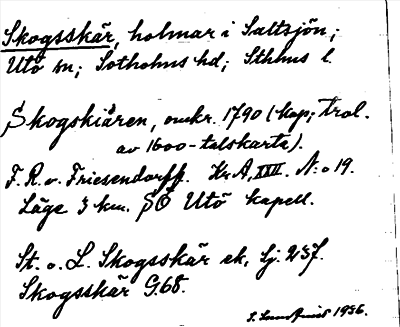 Skogsskär, holmar i Saltsjön;
Utö sn; Sotholms hd; Sthlms l.
Skogskiären, omkr. 1790 (kop; trol.
av 1600-talskarta).
F. R. v. Friesendorff. Kr A, XXII. N:o 19.
Läge 3 km. SÖ Utö kapell.
St. o. L. Skogsskär ek. Sj. 237.
Skogsskär G.68.
1936.